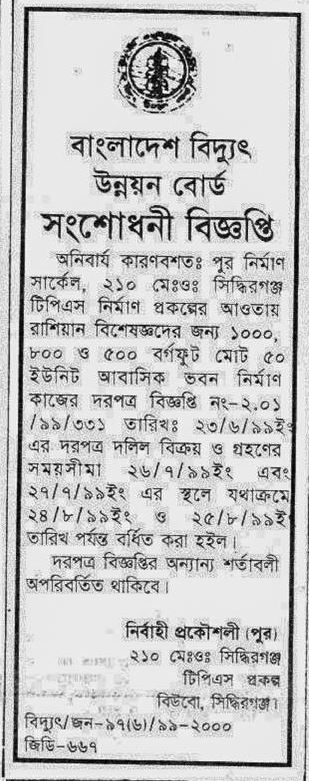 বাংলাদেশ বিদ্যুৎ
উন্নয়ন বোর্ড
সংশোধনী বিজ্ঞপ্তি
অনিবার্য কারণবশতঃ পুর নির্মাণ
সার্কেল, ২১০ মেঃওঃ সিদ্ধিরগঞ্জ
টিপিএস নির্মাণ প্রকল্পের আওতায়
রাশিয়ান বিশেষজ্ঞদের জন্য ১০০০,
৮০০ ও ৫০০ বর্গফুট মোট ৫০
ইউনিট আবাসিক ভবন নির্মাণ
কাজের দরপত্র বিজ্ঞপ্তি নং-২.০১
/৯৯/৩৩১ তারিখঃ ২৩/৬/৯৯ইং
এর দরপত্র দলিল বিক্রয় ও গ্রহণের
সময়সীমা ২৬/৭/৯৯ইং এবং
২৭/৭/৯৯ইং এর স্থলে যথাক্রমে
২৪/৮/৯৯ইং ও ২৫/৮/৯৯ইং
তারিখ পর্যন্ত বর্ধিত করা হইল।
দরপত্র বিজ্ঞপ্তির অন্যান্য শর্তাবলী
অপরিবর্তিত থাকিবে।
নির্বাহী প্রকৌশলী (পুর)
২১০ মেঃওঃ সিদ্ধিরগঞ্জ
টিপিএস প্রকল্প
বিউবো, সিদ্ধিরগঞ্জ।
বিদ্যুৎ/জন-৯৭(৬)/৯৯-২০০০
জিডি-৬৬৭